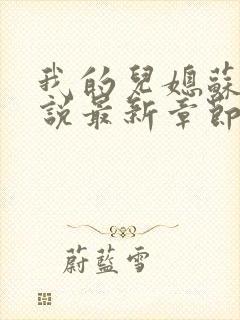 我的兒媳蘇
說最新章節
蔚藍雪